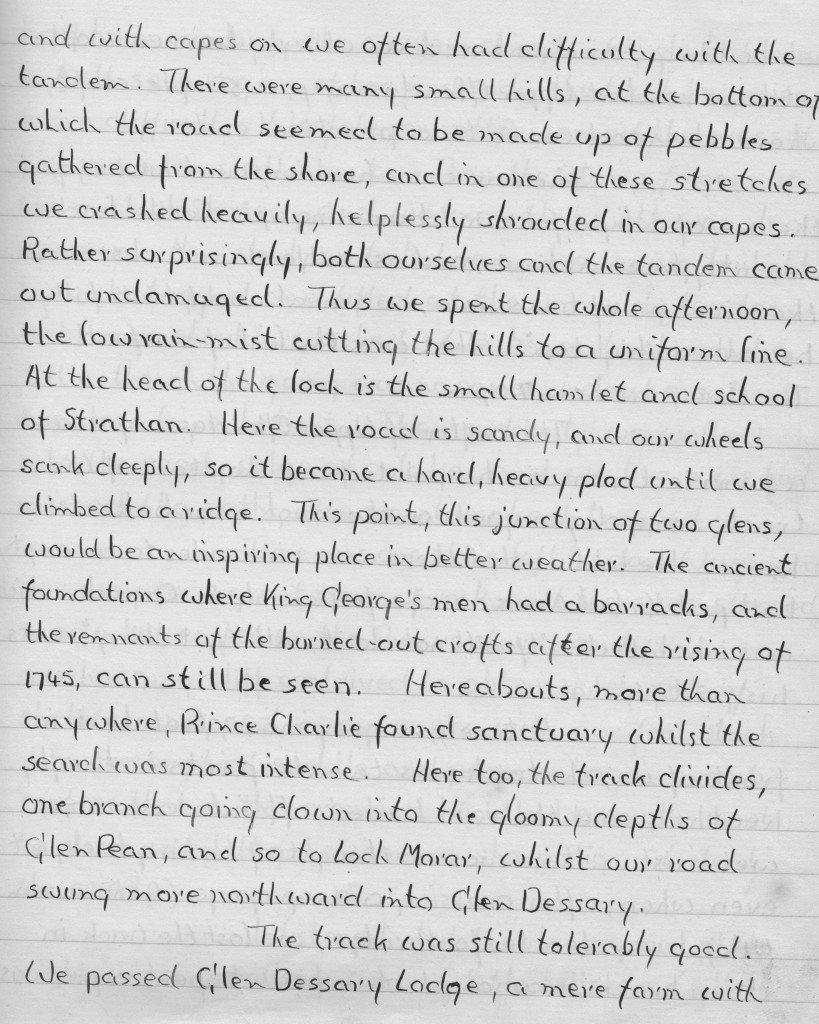 and with capes on we often had difficulty with the
tandem. There were many small hills, at the bottom of
which the road seemed to be made up of pebbles
gathered from the shore, and in one of these stretches
we crashed heavily, helplessly shrouded in our capes.
Rather surprisingly, both ourselves and the tandem came
out undamaged. Thus we spent the whole afternoon,
the low rain-mist cutting the hills to a uniform line.
At the head of the loch is the small hamlet and school
of Strathan. Here the road is sandy, and our wheels
sank deeply, so it became a hard, heavy plod until we
climbed to a ridge. This point, this junction of two glens,
would be an inspiring place in better weather. The ancient
foundations where King George's men had a barracks, and
the remnants of the burned-out crofts after the rising of
1745, can still be seen. Hereabouts, more than
anywhere, Prince Charlie found sanctuary whilst the
search was most intense. Here too, the track divides,
one branch going down into the gloomy depths of
Glen Pean, and so to Loch Morar, whilst our road
swung more northward into Glen Dessary.
The track was still tolerably good.
We passed Glen Dessary Lodge, a mere farm with